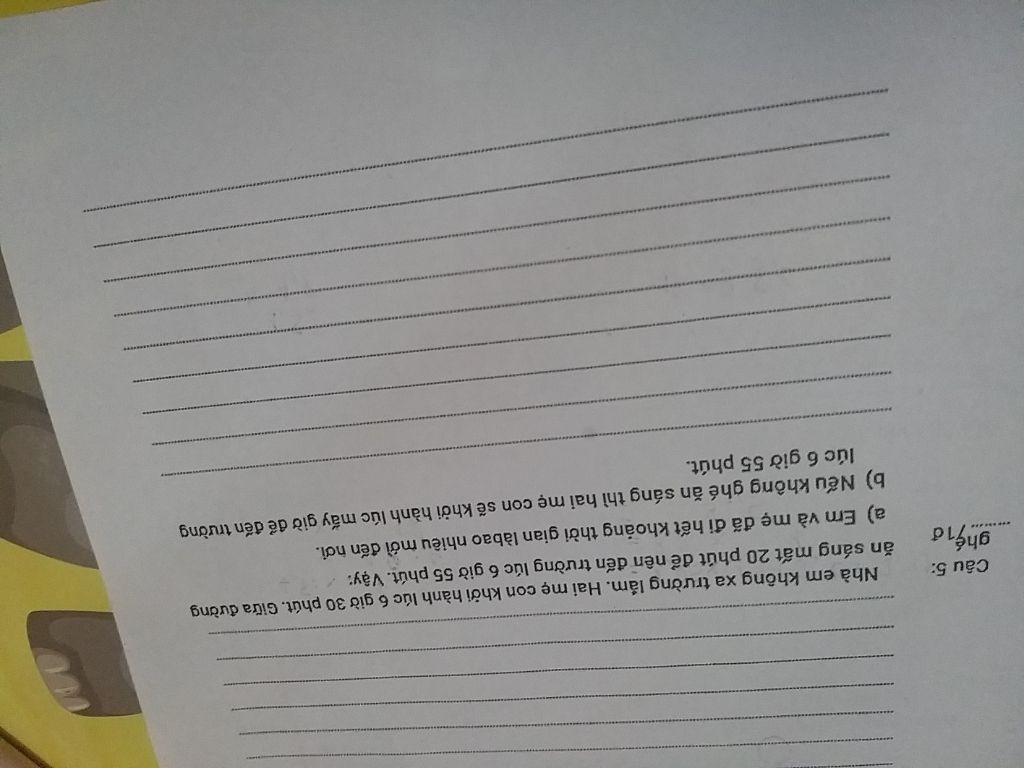 Câu 5:
Nhà em không xa trường lắm. Hai mẹ con khởi hành lúc 6 giờ 30 phút. Giữa đường
ghé
ăn sáng mất 20 phút để nên đến trường lúc 6 giờ 55 phút. Vậy:
......../1đ
a) Em và mẹ đã đi hết khoảng thời gian làbao nhiêu mới đến nơi.
b) Nếu không ghé ăn sáng thì hai mẹ con sẽ khởi hành lúc mấy giờ để đến trường
lúc 6 giờ 55 phút.